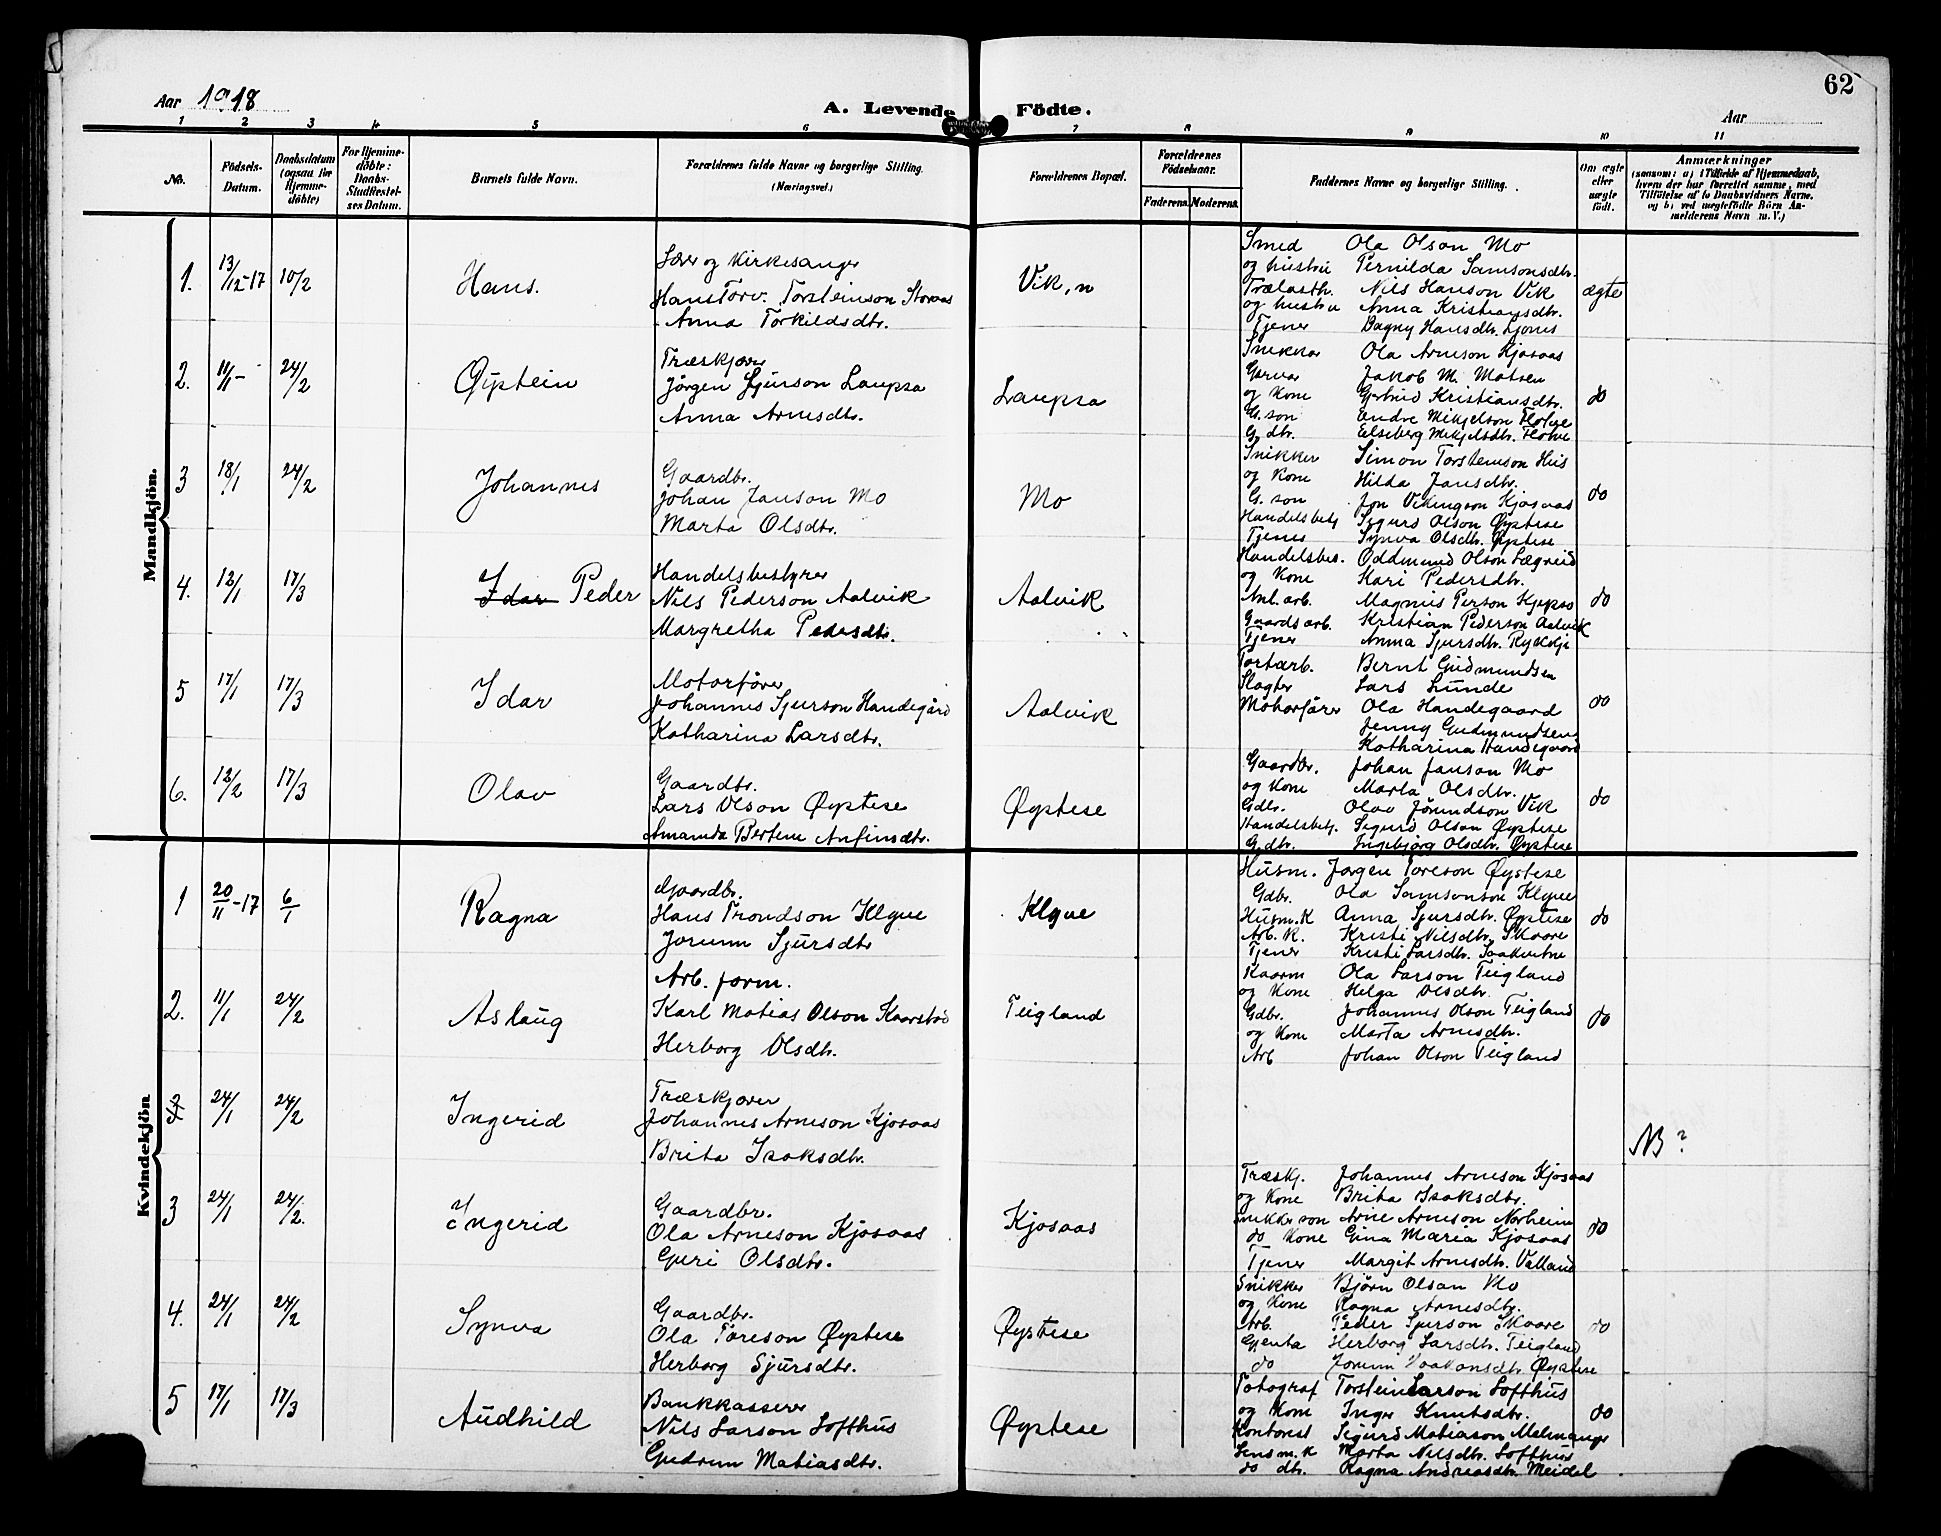 62
Aar 1918
A. Levende Födte.
Aar
1 2 3 4 5 6 7 8 9 10 11
No.
Födsels-Datum.
Daabsdatum (ogsaa for Hjemme-döbte)
For Hjemme-döbte: Daabs-Stadfæstel-ses Datum.
Barnets fulde Navn.
Forældrenes fulde Navne og borgerlige Stilling. (Næringsvei.)
Forældrenes Bopæl.
Forældrenes Födselsaar.
Faderens. Moderens.
Faddernes Navne og borgerlige Stilling.
Om ægte eller uægte födt.
Anmærkninger
(saasom: a) i Tilfælde af Hjemmedaab, hvem der har forrettet samme, med Tilföielse af to Daabsvidners Navne, og b) ved uægtefödte Börn Anmelderens Navn m. V.)
Mandkjön.
1. 13/12-17 10/2 Hans.
Lærer og Kirkesanger
Hans Torv. Torsteinson Storaas
Anna Torkildsdtr.
Vik, n
Smed Ola Olson Mo
og hustru Pernilda Samsonsdtr.
Trælasth. Nils Hanson Vik
og hustru Anna Kristiansdtr.
Tjener Dagny Hansdtr. Ljones
ægte
2. 11/1- 24/2 Øystein
Træskjærer
Jörgen Sjurson Laupsa
Anna Arnesdtr.
Laupsa
Snikkar Ola Arneson Kjosaas
Garvar Jakob M. Matsen
og Kone Gertrud Kristiansdtr.
G. son Endre Mikjelson Flotve
G. dtr. Elseberg Mikjelsdtr. Flotve
do
3 18/1 24/2 Johannes
Gaardbr.
Johan Janson Mo
Marta Olsdtr.
Mo
Snikker Simon Torsteinson Hus
og Kone Hilda Jansdtr.
G. son Jon Vikingson Kjosaas
Handelsbetj. Sigurd Olson Øystese
Tjenes Synva Olsdtr. Øystese
do
4. 12/1 17/3 Idar Peder
Handelsbestyrer
Nils Pederson Aalvik
Margretha Pedersdtr.
Aalvik
Handelsbes. Oddmund Olson Lægreid
og Kone Kari Pedersdtr.
Anl. arb. Magnus Person Kjepso
Gaardsarb. Kristian Pederson Aalvik
Tjener Anna Sjursdtr. Rykkje
do
5 17/1 17/3 Idar
Motorförer
Johannes Sjurson Handegård
Katharina Larsdtr.
Aalvik
Bernt Gudmundsen
Slagter Lars Lunde
Motorförer Ola Handegaard
Jenny Gudmundsen
Katharina Handegaard
do
6. 12/2 17/3 Olav
Gaardbr.
Lars Olson Øystese
Amanda Bertine Anfinsdtr.
Øystese
Gaardbr. Johan Janson Mo
og Kone Marta Olsdtr.
Gdbr. Olav Jörundson Vik
Handelsbetj. Sigurd Olson Øystese
G. dtr. Ingebjörg Olsdtr. Øystese
do
Kvindekjön
1 20/11-17 6/1 Ragna
Gaardbr.
Hans Trondson Klyve
Jorunn Sjursdtr
Klyve
Husm. Jörgen Toreson Øystese
Gdbr. Ola Samsonson Klyve
Husm. K Anna Sjursdtr. Øystese
Arb. K. Kristi Nilsdtr. Skaare
Tjener Kristi Larsdtr. Saakvitne
do
2. 11/1 24/2 Aslaug
Arb. form.
Karl Matias Olson Kaarstad
Herborg Olsdtr.
Teigland
Kaarm Ola Larson Teigland
og Kone Helga Olsdtr.
Gdbr. Johannes Olson Teigland
og Kone Marta Arnesdtr.
Arb Johan Olson Teigland
do
24/1 24/2 Ingerid
Træskjærer
Johannes Arneson Kjosaas
Brita Isaksdtr.
NB?
3 24/1 24/2. Ingerid
Gaardbr.
Ola Arneson Kjosaas
Guri Olsdtr.
Kjosaas
Træskj. Johannes Arneson Kjosaas
og Kone Brita Isaksdtr.
Snikker son Arne Arneson Norheim
do Kone Gina Maria Kjosaas
Tjener Margit Arnesdtr. Valland
do
4. 24/1 24/2 Synva
Gaardbr.
Ola Toreson Øystese
Herborg Sjursdtr.
Øystese
Snikker Björn Olson Mo
og Kone Ragna Arnesdtr.
Arb. Peder Sjurson Skaare
Gjenta Herborg Larsdtr. Teigland
do Jorunn Haakonsdtr. Øystese
do
5 17/1 17/3 Audhild
Bankkasserer
Nils Larson Lofthus
Gudrun Matiasdtr.
Øystese
Fotograf Torstein Larson Lofthus
og Kone Inger Knutsdtr.
Kontorist Sigurd Matiason Malmanger
Lensm. K Marta Nilsdtr. Lofthus
do dtr. Ragna Andreasdtr. Meidel
do